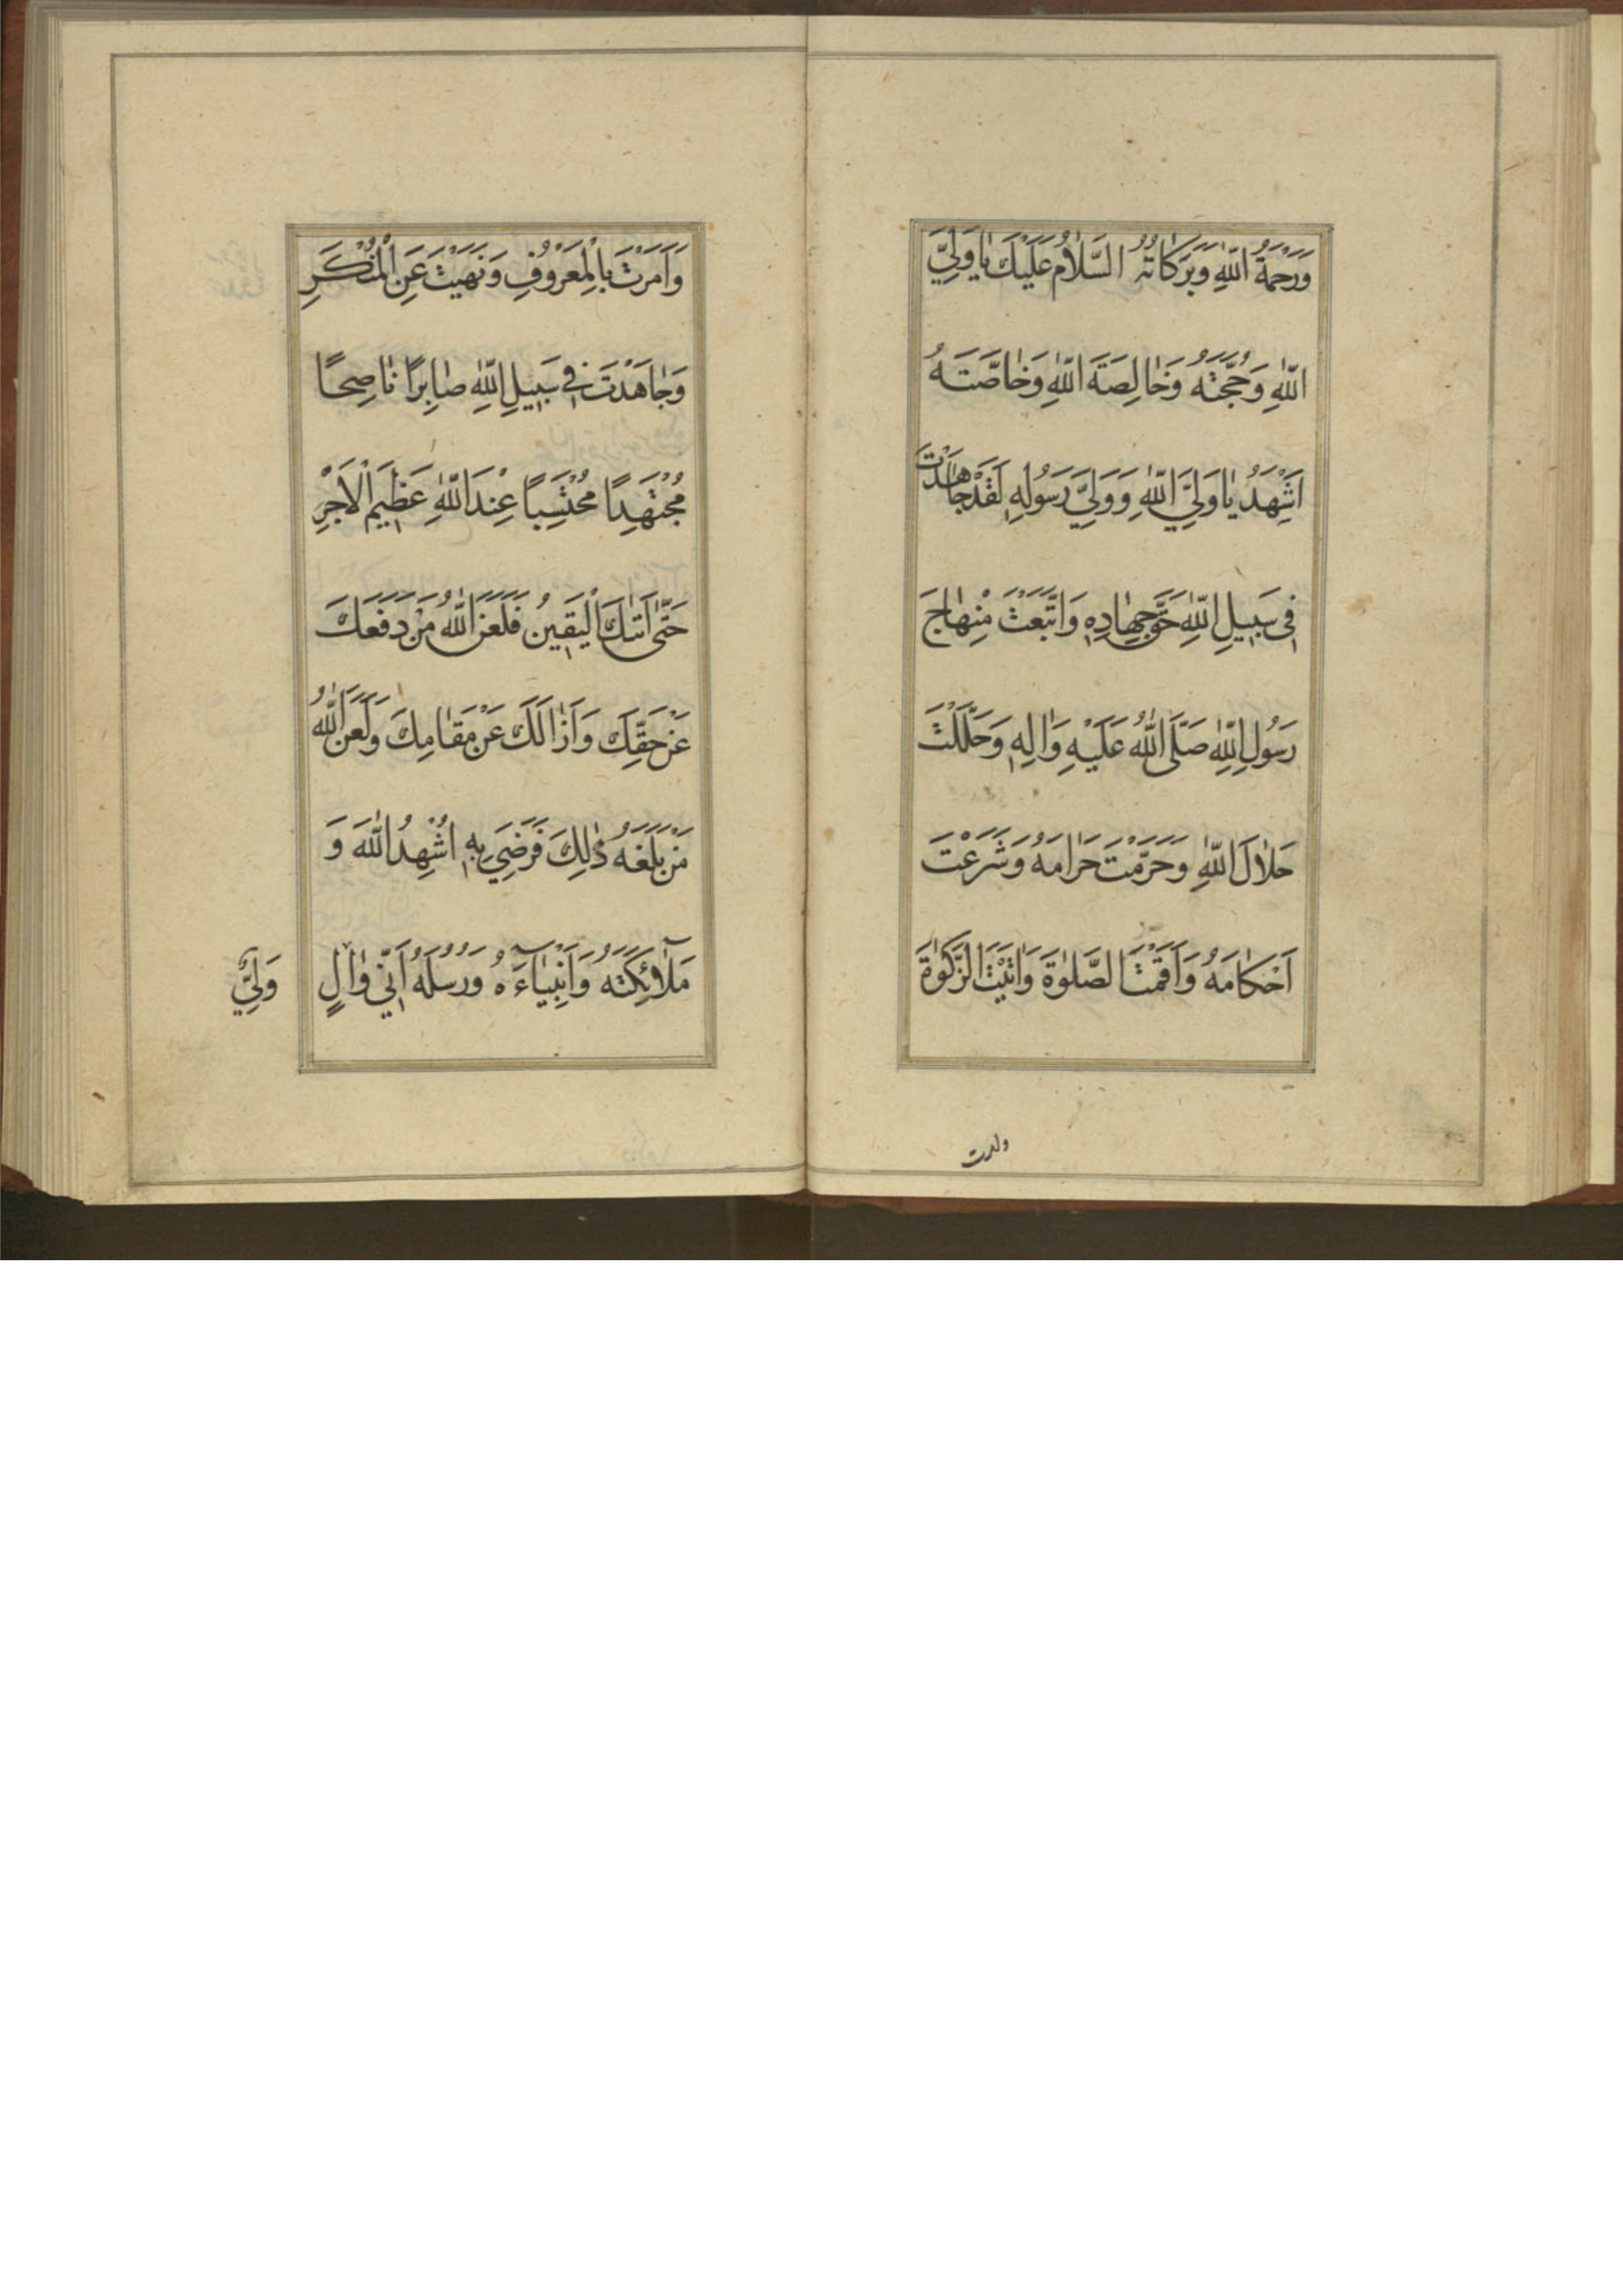 وَرَحْمَةُ اللّٰهِ وَبَرَكَاتُهُ السَّلَامُ عَلَيْكَ يَا وَلِيَّ
اللّٰهِ وَحُجَّتَهُ وَخَالِصَةَ اللّٰهِ وَخَاصَّتَهُ
اَشْهَدُ يَا وَلِيَّ اللّٰهِ وَوَلِيَّ رَسُولِهِ لَقَدْ جَاهَدْتَ
فِي سَبِيلِ اللّٰهِ حَقَّ جِهَادِهِ وَاتَّبَعْتَ مِنْهَاجَ
رَسُولِ اللّٰهِ صَلَّى اللّٰهُ عَلَيْهِ وَاٰلِهِ وَحَلَّلْتَ
حَلَالَ اللّٰهِ وَحَرَّمْتَ حَرَامَهُ وَشَرَعْتَ
اَحْكَامَهُ وَاَقَمْتَ الصَّلٰوةَ وَاٰتَيْتَ الزَّكٰوةَ
وامرت
وَاَمَرْتَ بِالْمَعْرُوفِ وَنَهَيْتَ عَنِ الْمُنْكَرِ
وَجَاهَدْتَ فِي سَبِيلِ اللّٰهِ صَابِرًا نَاصِحًا
مُجْتَهِدًا مُحْتَسِبًا عِنْدَ اللّٰهِ عَظِيمَ الْاَجْرِ
حَتّٰى اَتٰيكَ الْيَقِينُ فَلَعَنَ اللّٰهُ مَنْ دَفَعَكَ
عَنْ حَقِّكَ وَاَزَالَكَ عَنْ مَقَامِكَ وَلَعَنَ اللّٰهُ
مَنْ بَلَغَهُ ذٰلِكَ فَرَضِيَ بِهِ اُشْهِدُ اللّٰهَ وَ
مَلَآئِكَتَهُ وَاَنْبِيَآءَهُ وَرُسُلَهُ اَنِّي وَالٍ
وَلِيٌّ